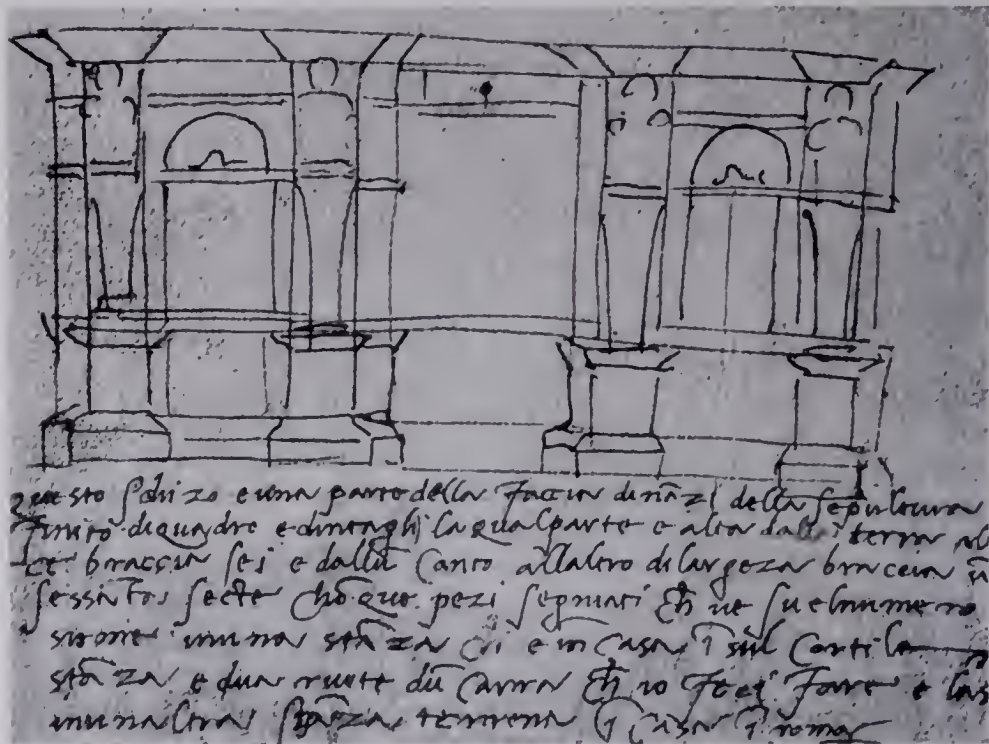 questo schizo e una parte della faccia dinãzi della sepultura
finito di quadro e dintagli la qual parte e alta dalla terra al
ce braccia sei e dallũ canto allaltro di largeza braccia ũ
sessãtasecte chõque pezi segniati ch̃ ve su el numero
sono inuna stãza ... e in casa ĩ sul cortile
stãza e dua ruote dũ carro ch̃ io feci fare e las
inunaltra stãza terrena ĩ casa ĩ roma